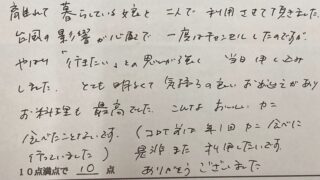 離れて暮らしている娘と二人で利用させて頂きました。
台風の影響が心配で一度はキャンセルしたのですが
やはり「行きたい」との思いが強く当日申し込み
しました。とても明るくて気持ちの良いお出迎えがあり
お料理も最高でした。こんなおいしいカニ
食べたことないです。(コロナ前は年1回カニ食べに
行っていました)是非また利用したいです。
10点満点で 10 点 ありがとうございました